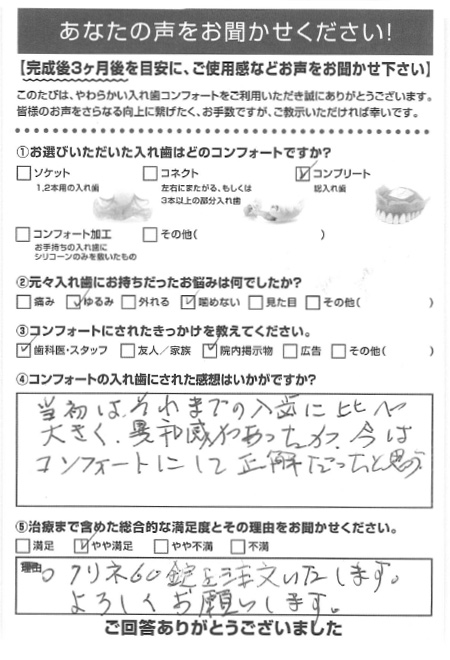 あなたの声をお聞かせください!
【完成後3ヶ月後を目安に、ご使用感などお声をお聞かせ下さい】
このたびは、やわらかい入れ歯コンフォートをご利用いただき誠にありがとうございます。
皆様のお声をさらなる向上に繋げたく、お手数ですが、ご教示いただければ幸いです。
①お選びいただいた入れ歯はどのコンフォートですか?
ソケット
1,2本用の入れ歯
コネクト
左右にまたがる、もしくは
3本以上の部分入れ歯
コンプリート
総入れ歯
コンフォート加工
お手持ちの入れ歯に
シリコーンのみを敷いたもの
その他( )
②元々入れ歯にお持ちだったお悩みは何でしたか?
痛み ゆるみ 外れる 噛めない 見た目 その他( )
③コンフォートにされたきっかけを教えてください。
歯科医・スタッフ 友人/家族 院内掲示物 広告 その他( )
④コンフォートの入れ歯にされた感想はいかがですか?
当初は、それまでの入歯に比べ
大きく、異和感があったが、今は
コンフォートにして正解だったと思う
⑤治療まで含めた総合的な満足度とその理由をお聞かせください。
満足 やや満足 やや不満 不満
理由 ○クリネ60錠を注文いたします。
よろしくお願いします。
ご回答ありがとうございました